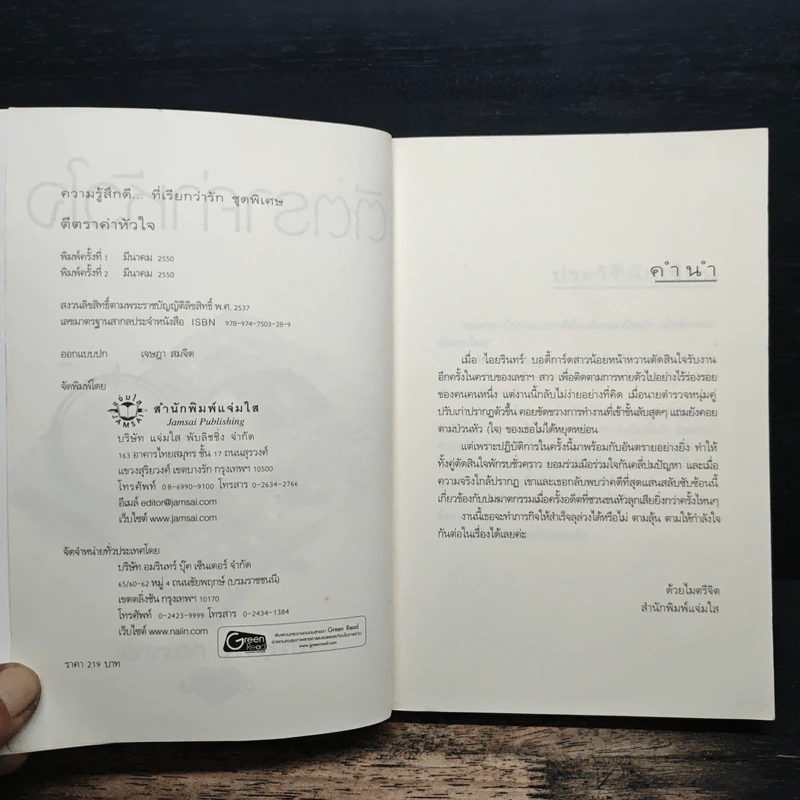 ความรู้สึกดี... ที่เรียกว่ารัก ชุดพิเศษ
ตีตราค่าหัวใจ
พิมพ์ครั้งที่ 1 มีนาคม 2550
พิมพ์ครั้งที่ 2 มีนาคม 2550
สงวนลิขสิทธิ์ตามพระราชบัญญัติลิขสิทธิ์ พ.ศ. 2537
เลขมาตรฐานสากลประจำหนังสือ ISBN 978-974-7503-28-9
ออกแบบปก เจษฎา สมจิต
จัดพิมพ์โดย
แจ่มใส
JAMSAI
สำนักพิมพ์แจ่มใส
Jamsai Publishing
บริษัท แจ่มใส พับลิชชิ่ง จำกัด
163 อาคารไทยสมุทร ชั้น 17 ถนนสุรวงศ์
แขวงสุริยวงศ์ เขตบางรัก กรุงเทพฯ 10500
โทรศัพท์ 08-6990-9100 โทรสาร 0-2634-2766
อีเมล์ editor@jamsai.com
เว็บไซต์ www.jamsai.com
จัดจำหน่ายทั่วประเทศโดย
บริษัท อมรินทร์ บุ๊ค เซ็นเตอร์ จำกัด
65/60-62 หมู่ 4 ถนนชัยพฤกษ์ (บรมราชชนนี)
เขตตลิ่งชัน กรุงเทพฯ 10170
โทรศัพท์ 0-2423-9999 โทรสาร 0-2434-1384
เว็บไซต์ www.naiin.com
Green Read
Green Read
www.greenread.com
ราคา 219 บาท
คำนำ
เมื่อ 'ไอยรินทร์' บอดี้การ์ดสาวน้อยหน้าหวานตัดสินใจรับงาน
อีกครั้งในคราบของเลขาฯ สาว เพื่อติดตามการหายตัวไปอย่างไร้ร่องรอย
ของคนคนหนึ่ง แต่งานนี้กลับไม่ง่ายอย่างที่คิด เมื่อนายตำรวจหนุ่มคู่
ปรับเก่าปรากฏตัวขึ้น คอยขัดขวางการทำงานที่เข้าขั้นลับสุดๆ แถมยังคอย
ตามป่วนหัว (ใจ) ของเธอไม่ได้หยุดหย่อน
แต่เพราะปฏิบัติการในครั้งนี้มาพร้อมกับอันตรายอย่างยิ่ง ทำให้
ทั้งคู่ตัดสินใจพักรบชั่วคราว ยอมร่วมมือร่วมใจกันคลี่ปมปัญหา และเมื่อ
ความจริงใกล้ปรากฏ เขาและเธอกลับพบว่าคดีที่สุดแสนสลับซับซ้อนนี้
เกี่ยวข้องกับปมฆาตกรรมเมื่อครั้งอดีตที่ชวนขนหัวลุกเสียยิ่งกว่าครั้งไหนๆ
งานนี้เธอจะทำภารกิจให้สำเร็จลุล่วงได้หรือไม่ ตามลุ้น ตามให้กำลังใจ
กันต่อในเรื่องได้เลยค่ะ
ด้วยไมตรีจิต
สำนักพิมพ์แจ่มใส